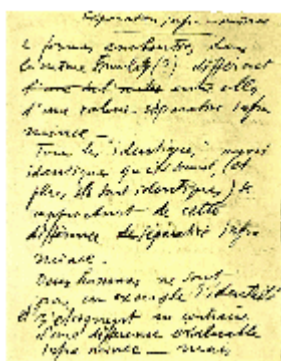 Séparation infra-mince
2 formes embouties dans
le même moule (?) diffèrent
entre elles
d'une valeur séparative infra
mince —
Tous les "identiques" aussi
identiques qu'ils soient, (et
plus ils sont identiques) se
rapprochent de cette
différence séparative infra
mince.
Deux hommes ne sont
pas un exemple d'identité
et s'éloignent au contraire
d'une différence évaluable
infra mince — mais